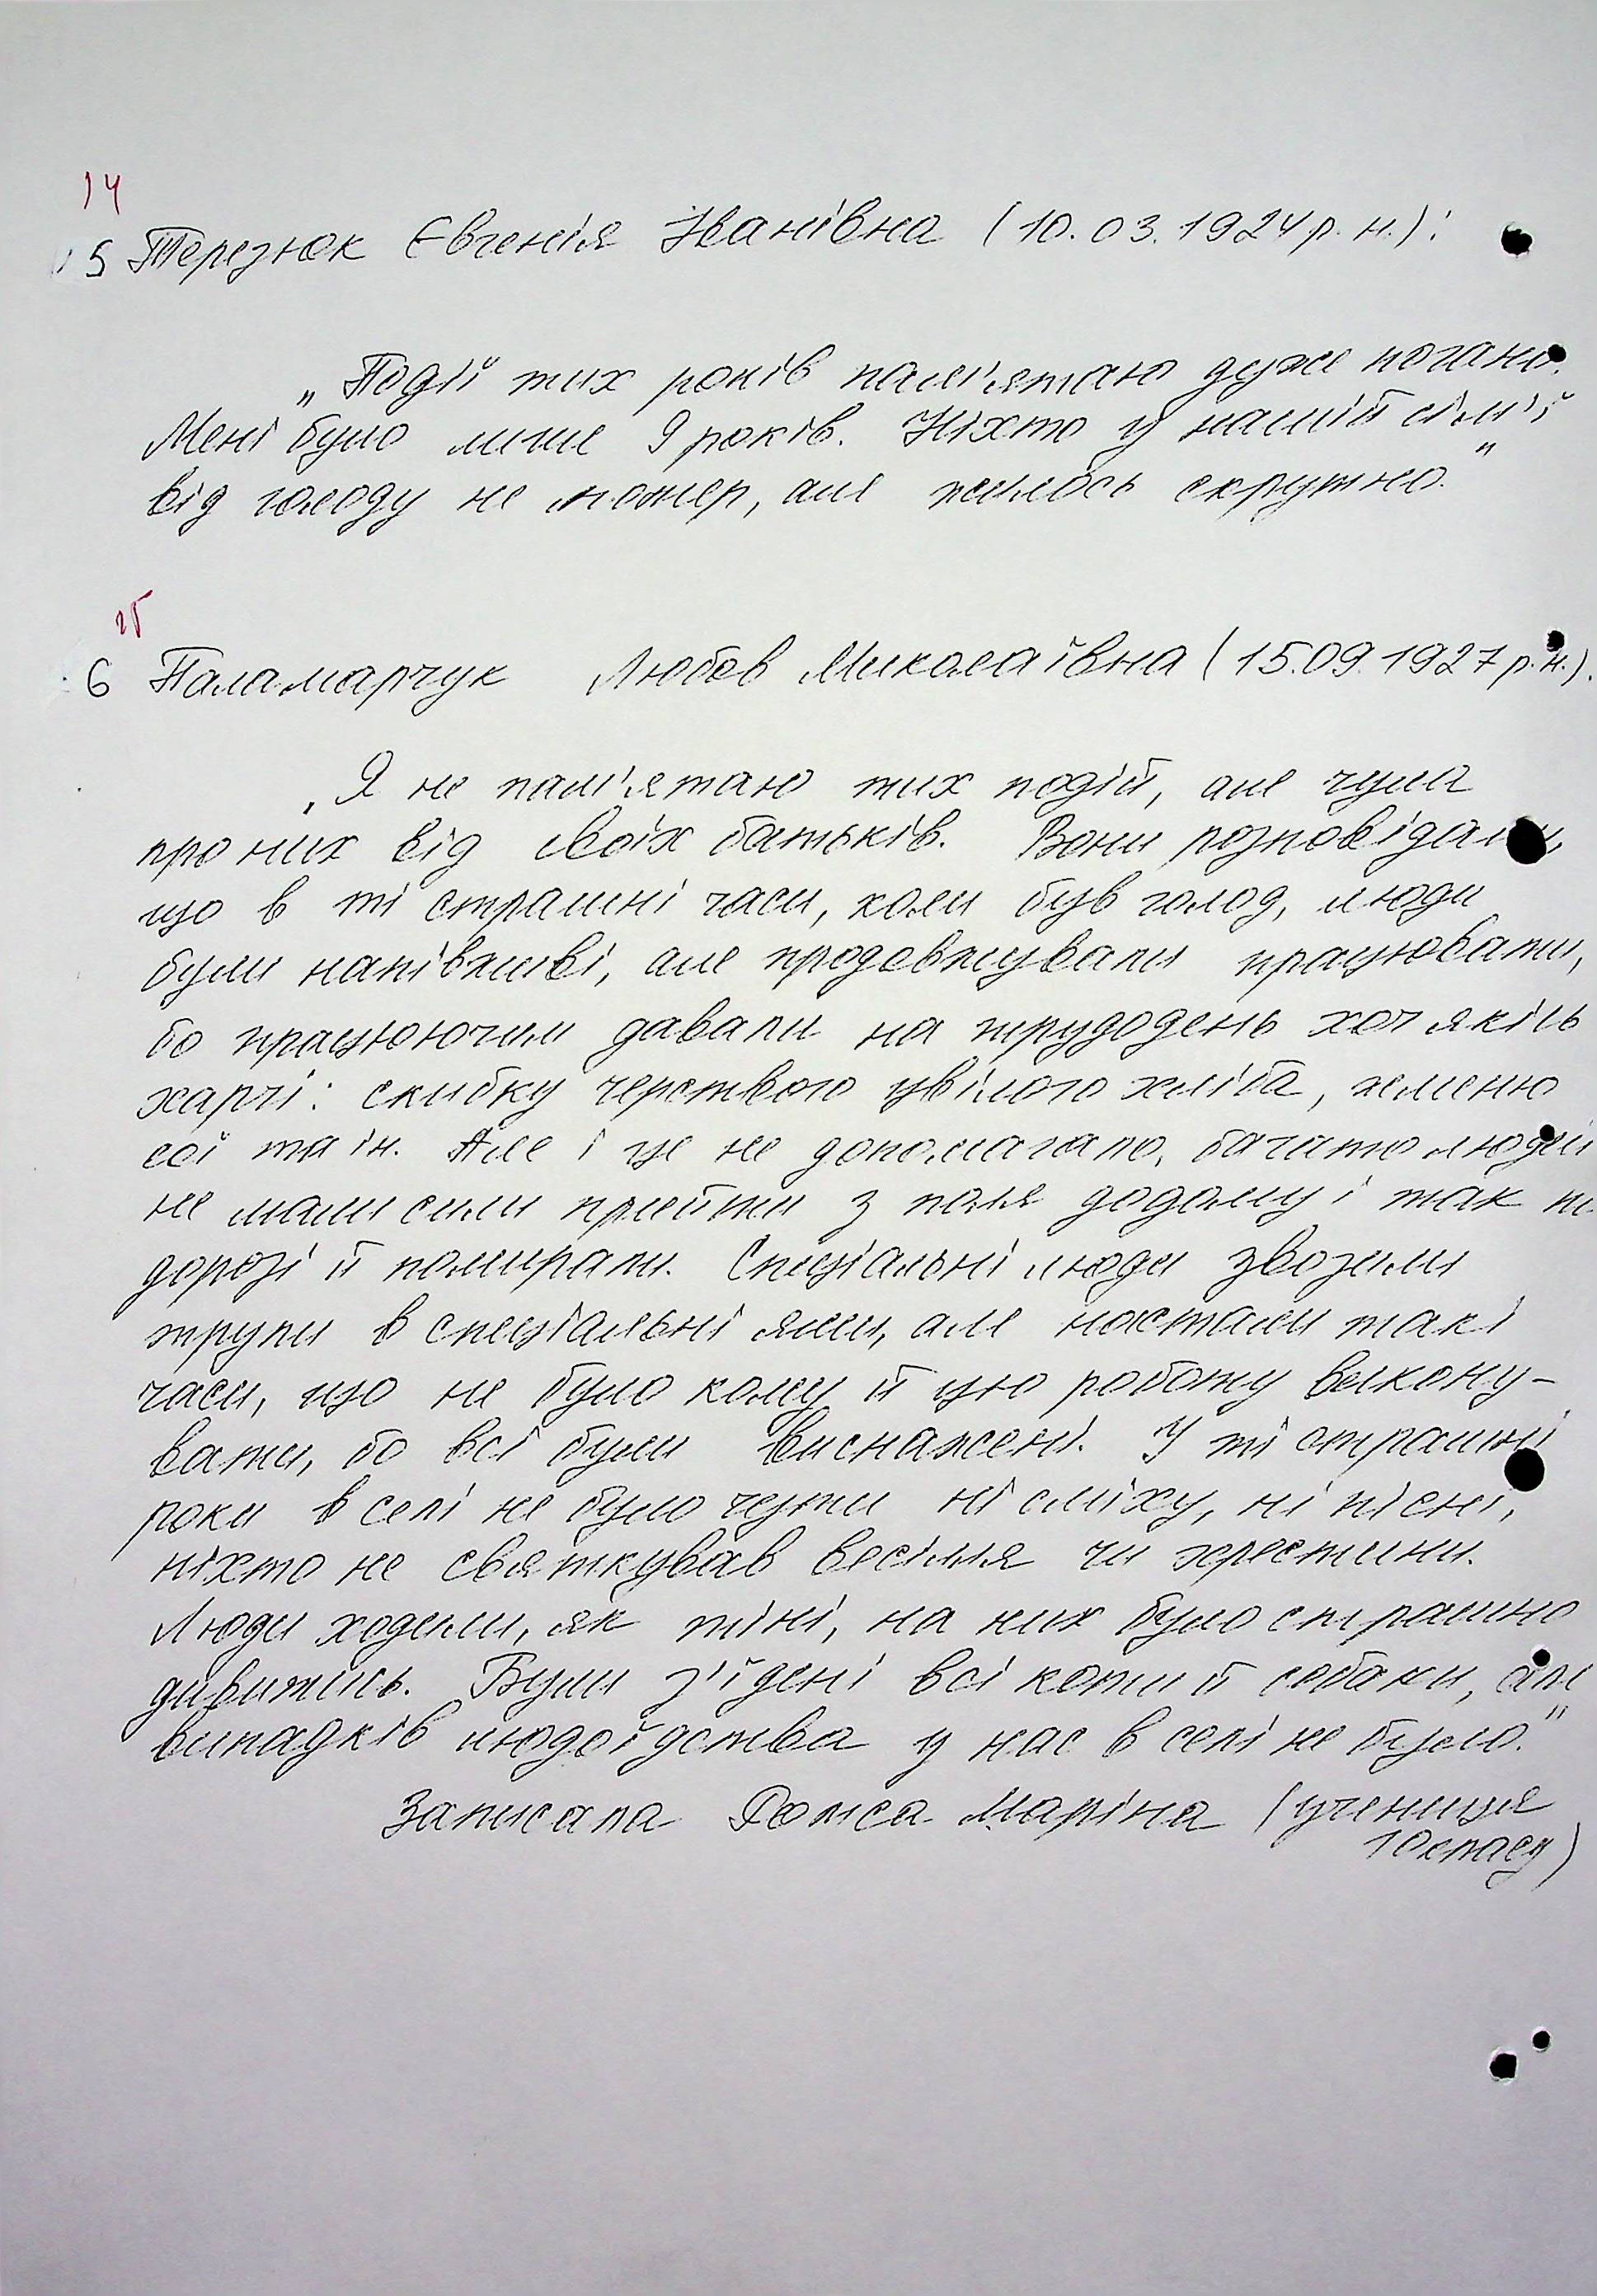 14
5 Терезюк Євгенія Іванівна (10.03.1924 р. н.):
„Події тих років пам'ятаю дуже погано.
Мені було лише 9 років. Ніхто у нашій сім'ї
від голоду не помер, але жилось скрутно."
15
6 Паламарчук Любов Миколаївна (15.09.1927 р. н.).
„Я не пам'ятаю тих подій, але чула
про них від своїх батьків. Вони розповідали,
що в ті страшні часи, коли був голод, люди
були напівживі, але продовжували працювати,
бо працюючим давали на трудодень хоч якісь
харчі: скибку черствого цвілого хліба, жменю
сої та ін. Але і це не допомагало, багато людей
не мали сили прийти з поля додому і так
дорозі й помирали. Спеціальні люди звозили
трупи в спеціальні ями, але настали такі
часи, що не було кому й цю роботу викону-
вати, бо всі були виснажені. У ті страшні
роки в селі не було чути ні сміху, ні пісні,
ніхто не святкував весілля чи хрестини.
Люди ходили, як тіні, на них було страшно
дивитись. Були з'їдені всі коти й собаки, але
випадків людоїдства у нас в селі не було."
Записала Маріна (учениця
10 класу)